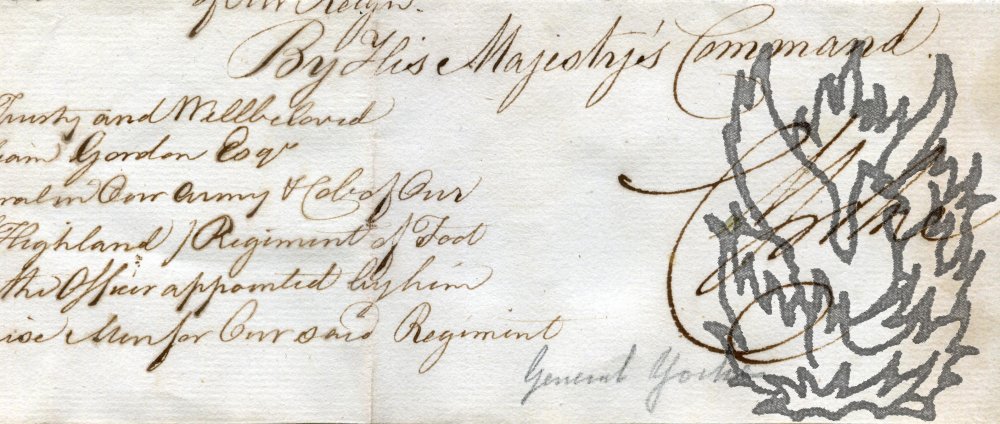 of Our Reign.
By His Majesty's Command.
Trusty and Wellbeloved
iam Gordon Esqr
ral in Our Army & Col: of Our
Highland / Regiment of Foot
the Officer appointed by him
ise Men for Our said Regiment
General